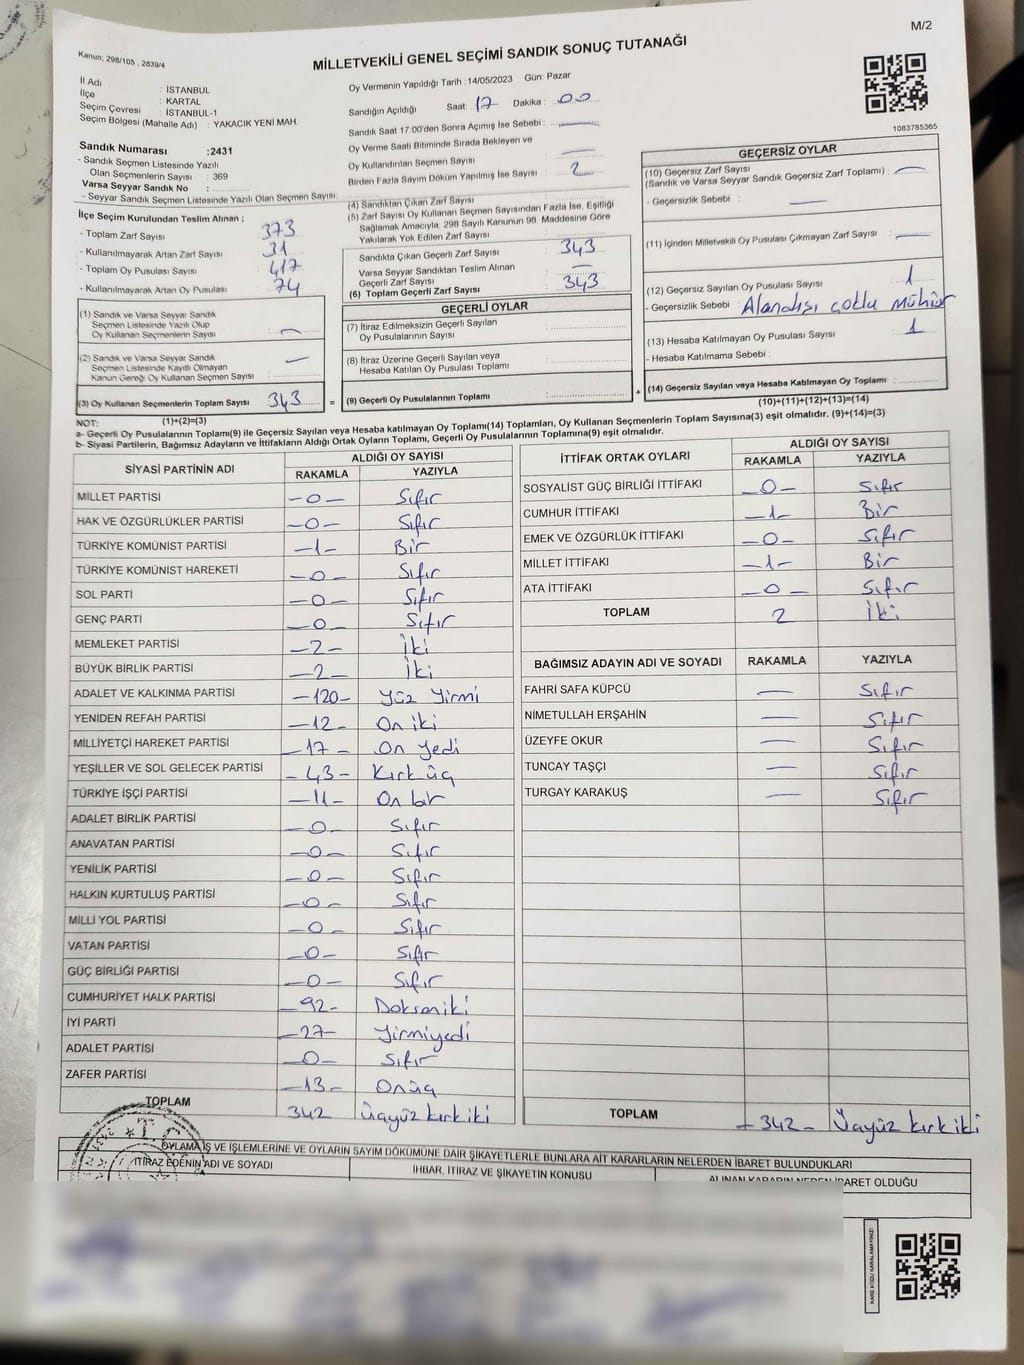 M/2
Kanun; 298/105 , 2839/4
MİLLETVEKİLİ GENEL SEÇİMİ SANDIK SONUÇ TUTANAĞI
İl Adı : İSTANBUL
İlçe : KARTAL
Seçim Çevresi : İSTANBUL-1
Seçim Bölgesi (Mahalle Adı) : YAKACIK YENİ MAH.
Sandık Numarası :2431
- Sandık Seçmen Listesinde Yazılı
Olan Seçmenlerin Sayısı : 369
Varsa Seyyar Sandık No :
- Seyyar Sandık Seçmen Listesinde Yazılı Olan Seçmen Sayısı:
İlçe Seçim Kurulundan Teslim Alınan ;
- Toplam Zarf Sayısı : 373
- Kullanılmayarak Artan Zarf Sayısı : 31
- Toplam Oy Pusulası Sayısı : 417
- Kullanılmayarak Artan Oy Pusulası : 74
(1) Sandık ve Varsa Seyyar Sandık
Seçmen Listesinde Yazılı Olup
Oy Kullanan Seçmenlerin Sayısı : —
(2) Sandık ve Varsa Seyyar Sandık
Seçmen Listesinde Kayıtlı Olmayan
Kanun Gereği Oy Kullanan Seçmen Sayısı : —
(3) Oy Kullanan Seçmenlerin Toplam Sayısı 343
(1)+(2)=(3)
Oy Vermenin Yapıldığı Tarih : 14/05/2023 Gün: Pazar
Sandığın Açıldığı Saat : 17 Dakika : 00
Sandık Saat 17:00'den Sonra Açımış İse Sebebi : —
Oy Verme Saati Bitiminde Sırada Bekleyen ve
Oy Kullandırılan Seçmen Sayısı : —
Birden Fazla Sayım Döküm Yapılmış İse Sayısı : 2
(4) Sandıktan Çıkan Zarf Sayısı
(5) Zarf Sayısı Oy Kullanan Seçmen Sayısından Fazla İse, Eşitliği
Sağlamak Amacıyla, 298 Sayılı Kanunun 98. Maddesine Göre
Yakılarak Yok Edilen Zarf Sayısı :
Sandıkta Çıkan Geçerli Zarf Sayısı : 343
Varsa Seyyar Sandıktan Teslim Alınan
Geçerli Zarf Sayısı : —
(6) Toplam Geçerli Zarf Sayısı : 343
GEÇERLİ OYLAR
(7) İtiraz Edilmeksizin Geçerli Sayılan
Oy Pusulalarının Sayısı :
(8) İtiraz Üzerine Geçerli Sayılan veya
Hesaba Katılan Oy Pusulası Toplamı :
= (9) Geçerli Oy Pusulalarının Toplamı :
1083785365
GEÇERSİZ OYLAR
(10) Geçersiz Zarf Sayısı
(Sandık ve Varsa Seyyar Sandık Geçersiz Zarf Toplamı) : —
- Geçersizlik Sebebi : —
(11) İçinden Milletvekili Oy Pusulası Çıkmayan Zarf Sayısı : —
(12) Geçersiz Sayılan Oy Pusulası Sayısı : 1
- Geçersizlik Sebebi : Alandışı çoklu mühür
(13) Hesaba Katılmayan Oy Pusulası Sayısı : 1
- Hesaba Katılmama Sebebi :
+ (14) Geçersiz Sayılan veya Hesaba Katılmayan Oy Toplamı :
(10)+(11)+(12)+(13)=(14)
NOT:
a- Geçerli Oy Pusulalarının Toplamı(9) ile Geçersiz Sayılan veya Hesaba katılmayan Oy Toplamı(14) Toplamları, Oy Kullanan Seçmenlerin Toplam Sayısına(3) eşit olmalıdır. (9)+(14)=(3)
b- Siyasi Partilerin, Bağımsız Adayların ve İttifakların Aldığı Ortak Oyların Toplamı, Geçerli Oy Pusulalarının Toplamına(9) eşit olmalıdır.
SİYASİ PARTİNİN ADI ALDIĞI OY SAYISI
RAKAMLA YAZIYLA
MİLLET PARTİSİ -0- Sıfır
HAK VE ÖZGÜRLÜKLER PARTİSİ -0- Sıfır
TÜRKİYE KOMÜNİST PARTİSİ -1- Bir
TÜRKİYE KOMÜNİST HAREKETİ -0- Sıfır
SOL PARTİ -0- Sıfır
GENÇ PARTİ -0- Sıfır
MEMLEKET PARTİSİ -2- İki
BÜYÜK BİRLİK PARTİSİ -2- İki
ADALET VE KALKINMA PARTİSİ -120- Yüz Yirmi
YENİDEN REFAH PARTİSİ -12- On iki
MİLLİYETÇİ HAREKET PARTİSİ -17- On yedi
YEŞİLLER VE SOL GELECEK PARTİSİ -43- Kırk üç
TÜRKİYE İŞÇİ PARTİSİ -11- On bir
ADALET BİRLİK PARTİSİ -0- Sıfır
ANAVATAN PARTİSİ -0- Sıfır
YENİLİK PARTİSİ -0- Sıfır
HALKIN KURTULUŞ PARTİSİ -0- Sıfır
MİLLİ YOL PARTİSİ -0- Sıfır
VATAN PARTİSİ -0- Sıfır
GÜÇ BİRLİĞİ PARTİSİ -0- Sıfır
CUMHURİYET HALK PARTİSİ -92- Doksaniki
İYİ PARTİ -27- Yirmiyedi
ADALET PARTİSİ -0- Sıfır
ZAFER PARTİSİ -13- Onüç
TOPLAM 342 Üçyüz kırk iki
İTTİFAK ORTAK OYLARI ALDIĞI OY SAYISI
RAKAMLA YAZIYLA
SOSYALİST GÜÇ BİRLİĞİ İTTİFAKI -0- Sıfır
CUMHUR İTTİFAKI -1- Bir
EMEK VE ÖZGÜRLÜK İTTİFAKI -0- Sıfır
MİLLET İTTİFAKI -1- Bir
ATA İTTİFAKI -0- Sıfır
TOPLAM 2 İki
BAĞIMSIZ ADAYIN ADI VE SOYADI RAKAMLA YAZIYLA
FAHRİ SAFA KÜPCÜ — Sıfır
NİMETULLAH ERŞAHİN — Sıfır
ÜZEYFE OKUR — Sıfır
TUNCAY TAŞÇI — Sıfır
TURGAY KARAKUŞ — Sıfır
TOPLAM -342- Üçyüz kırk iki
OYLAMA İŞ VE İŞLEMLERİNE VE OYLARIN SAYIM DÖKÜMÜNE DAİR ŞİKAYETLERLE BUNLARA AİT KARARLARIN NELERDEN İBARET BULUNDUKLARI
İTİRAZ EDENİN ADI VE SOYADI İHBAR, İTİRAZ VE ŞİKAYETİN KONUSU ALINAN KARARIN NEDEN İBARET OLDUĞU
KARE KODU KARALAMAYINIZ!